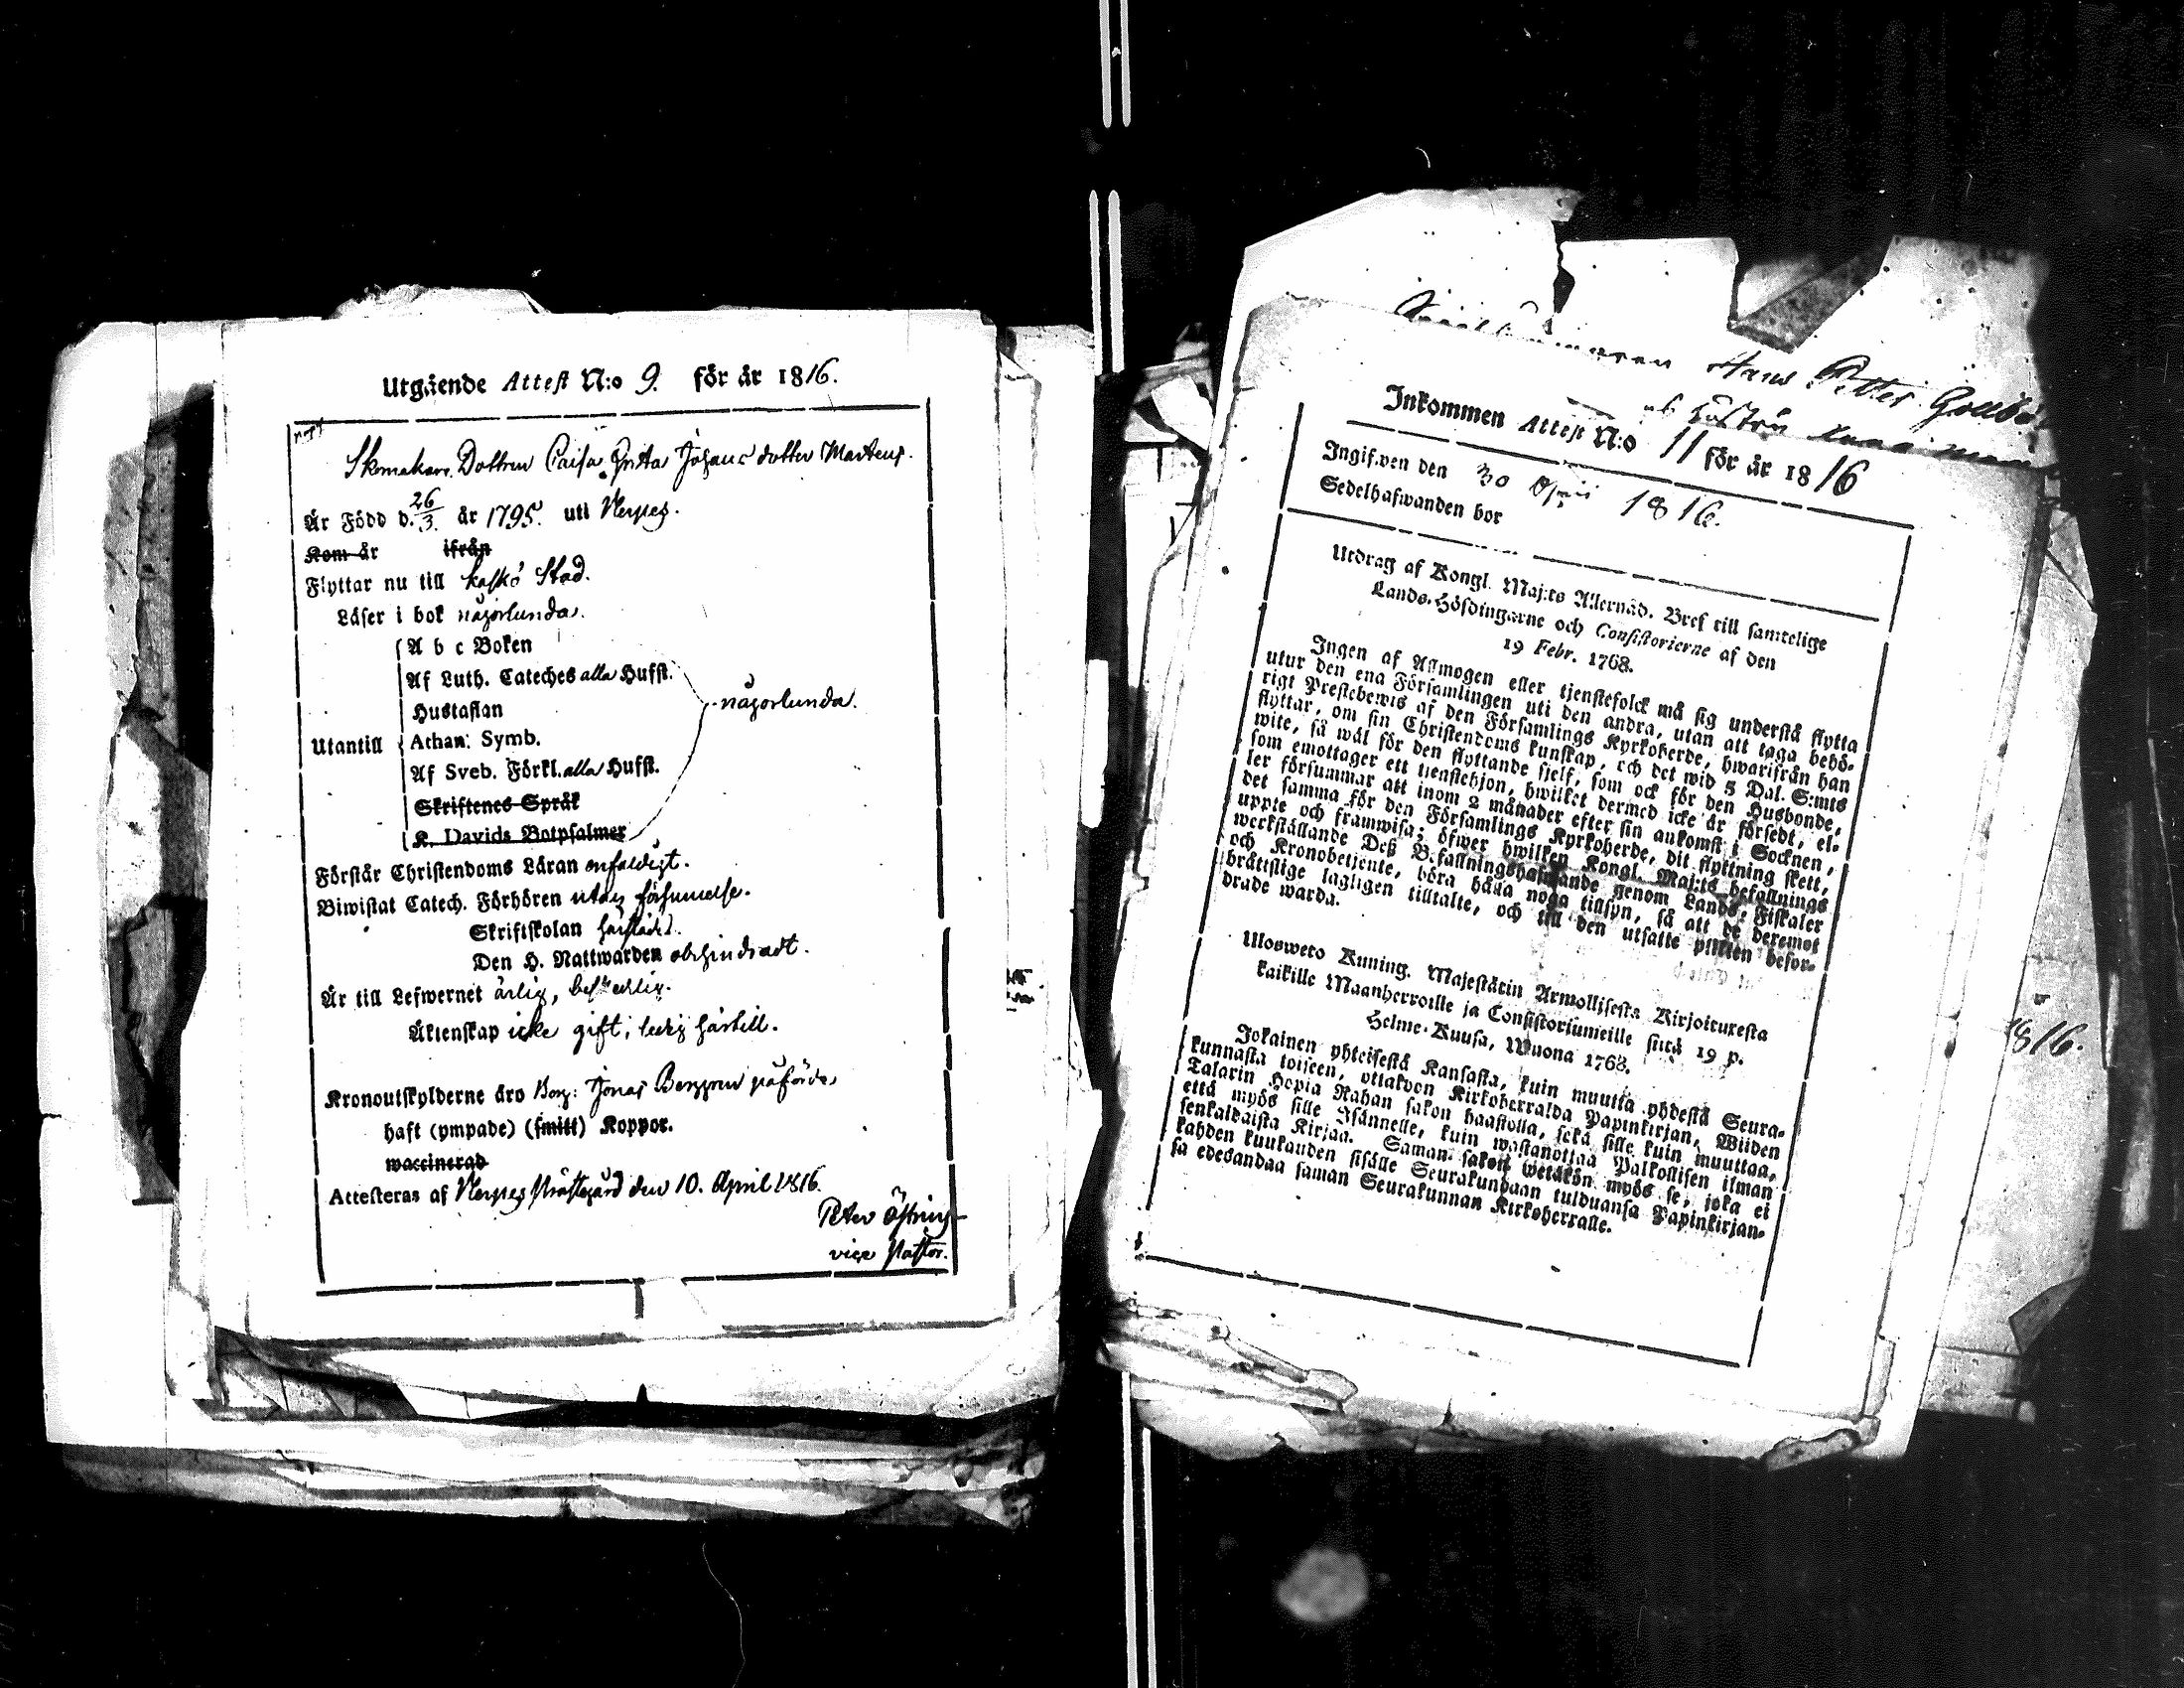 Utgående Attest N:o 9. för år 1816.
Skomakare Dottren Caisa Greta Johans dotter Martens.
Är Född d. 26/3. år 1795. uti Nerpes.
Kom år ifrån
Flyttar nu till Kaskö Stad.
Läser i bok någorlunda.
A b c Boken
Af Luth. Cateches alla Hufst.
Hustaflan
någorlunda.
Utantill
Athan: Symb.
Af Sveb. Förkl. alla Hufst.
Skriftenes Språk
K. Davids Botpsalmer
Förstår Christendoms Läran enfaldigt.
Biwistat Catech. Förhören utan försummelse.
Skriftskolan härstädes.
Den H. Nattwarden obehindradt.
Är till Lefwernet ärlig, beskedlig.
Äktenskap icke gift, ledig härtill.
Kronoutskylderne äro Borg: Jonas Berggren påförde,
haft (ympade) (smitt) Koppor.
waccinerad
Attesteras af Nerpes Prästegård den 10. April 1816.
Peter
vice Pastor.
Hans Petter
Hustru
Inkommen Attest N:o 11 för år 1816
Ingifwen den 30 April 1816.
Sedelhafwanden bor
Utdrag af Kongl. Maj:ts Allernåd. Bref till samtelige
Lands-Höfdingarne och Consistorierne af den
19 Febr. 1768.
Ingen af Allmogen eller tjenstefolck må sig understå flytta
utur den ena Församlingen uti den andra, utan att taga behö-
rigt Prestebewis af den Församlings Kyrkoherde, hwarifrån han
flyttar, om sin Christendoms kunskap, och det wid 5 Dal. S:mts
wite, så wäl för den flyttande sjelf, som ock för den Husbonde,
som emottager ett tienstehjon, hwilket dermed icke är försedt, el-
ler försummar att inom 2 månader efter sin ankomst i Socknen,
det samma för den Församlings Kyrkoherde, dit flyttning skett,
uppte och framwisa; öfwer hwilken Kongl. Maj:ts befallnings
werkställande Deß Befallningshafwande genom Lands-Fiskaler
och Kronobetjente, böra hålla noga tillsyn, så att de deremot
bråttslige lagligen tilltalte, och till den utsatte plikten befor-
drade warda.
Uloswero Kuning. Majestätin Armollisesta Kirjoituresta
kaikille Maanherroille ja Consistoriumeille siitä 19 p.
Helme-Kuusa, Wuona 1768.
Jokainen yhteisestä Kansasta, kuin muutta yhdestä Seura-
kunnasta toiseen, ottakoon Kirkoherralda Papinkirjan, Wiiden
Talarin Hopia Rahan sakon haastolla, sekä sille kuin muuttaa,
että myös sille Isännelle, kuin wastanottaa Palkollisen ilman
senkaltaista Kirjaa. Saman sakon wetäkön myös se, joka ei
kahden kuukauden sisälle Seurakundaan tulduansa Papinkirjan-
sa edesandaa saman Seurakunnan Kirkoherralle.
1816.